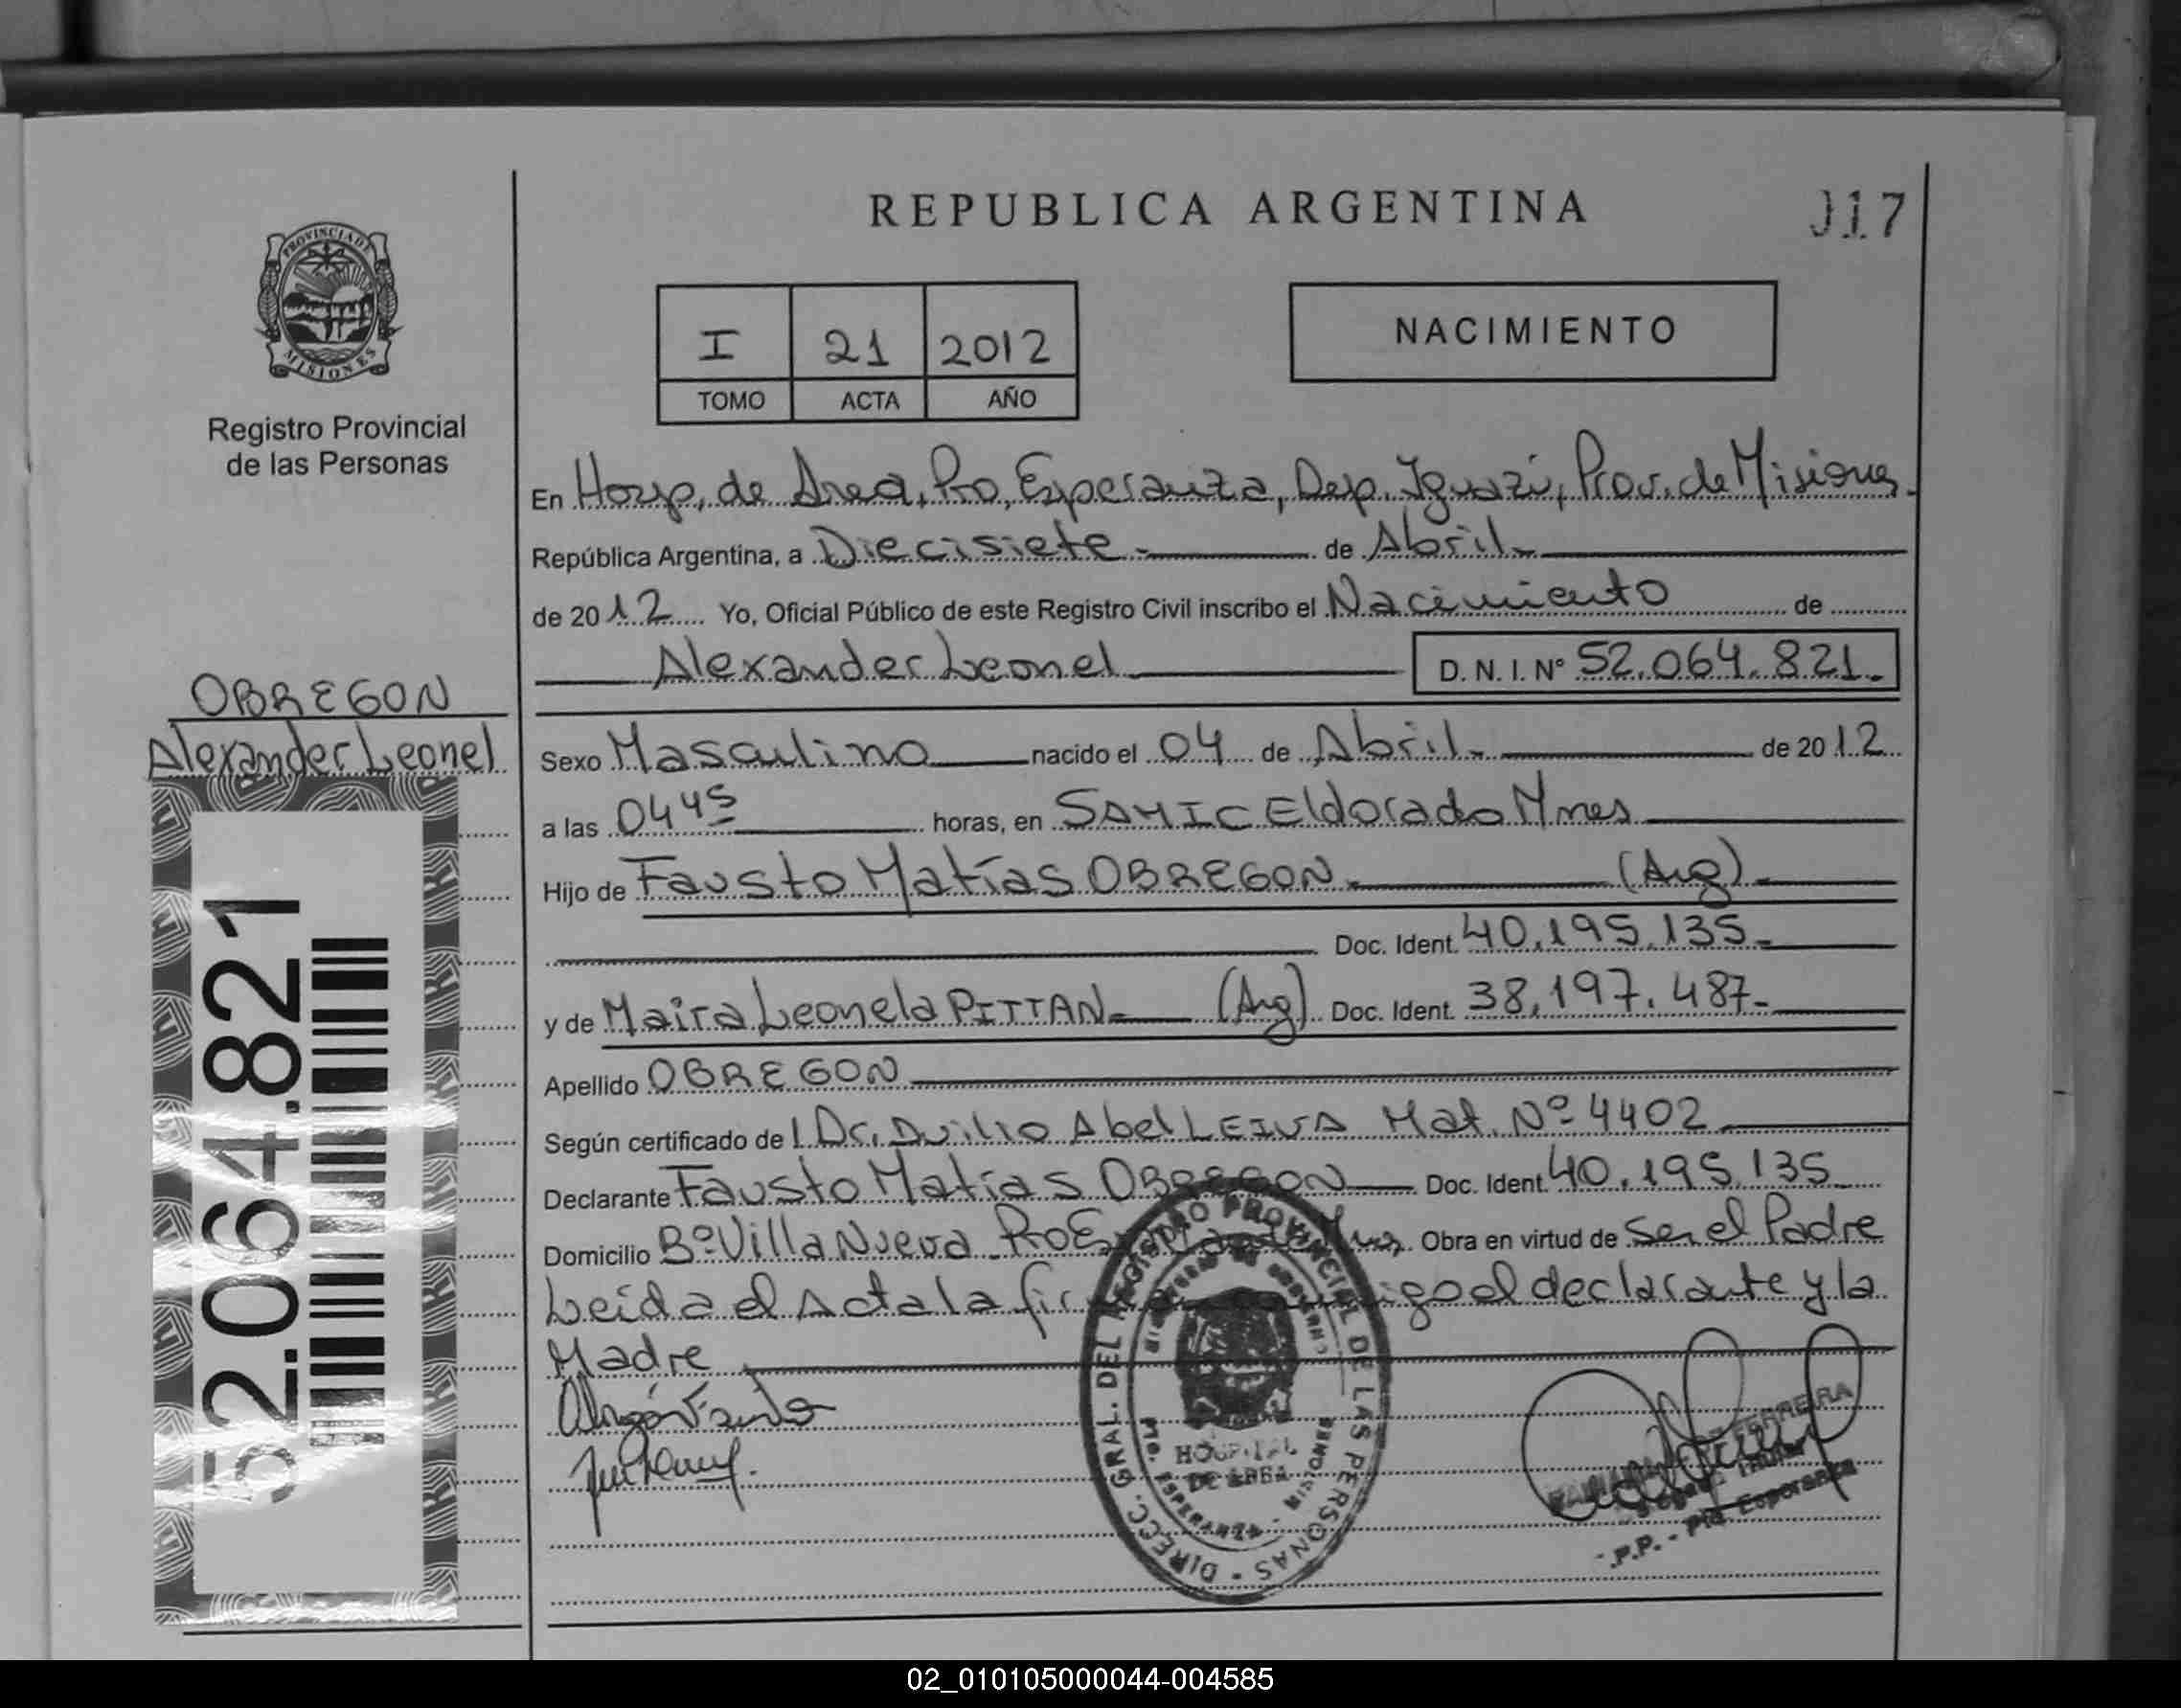 REPUBLICA ARGENTINA
117
PROVINCIA DE
MISIONES
Registro Provincial
de las Personas
I 21 2012
TOMO ACTA AÑO
NACIMIENTO
En Hosp. de Area, Pto. Esperanza, Dep. Iguazú, Prov. de Misiones.
República Argentina, a Diecisiete.- de Abril.-
de 2012 Yo, Oficial Público de este Registro Civil inscribo el Nacimiento de
Alexander Leonel D. N. I. Nº 52.064.821.-
OBREGON
Alexander Leonel
52.064.821
Sexo Masculino nacido el 04 de Abril.- de 2012
a las 04 45 horas, en SAMIC Eldorado Mnes
Hijo de Fausto Matías OBREGON.- (Arg).-
Doc. Ident. 40.195.135.-
y de Maira Leonela PITTAN.- (Arg) Doc. Ident. 38.197.487.-
Apellido OBREGON
Según certificado de l Dr. Duilio Abel LEIVA Mat. Nº 4402
Declarante Fausto Matías OBREGON Doc. Ident. 40.195.135
Domicilio Bº Villa Nueva Pto Mnes. Obra en virtud de Ser el Padre
Leída el Acta la el declarante y la
Madre
DIRECC. GRAL. DEL REGISTRO PROVINCIAL DE LAS PERSONAS
HOSPITAL
DE AREA
PTO. ESPERANZA - MISIONES
FERREIRA
Titular
P.P. - Pto Esperanza
02_010105000044-004585